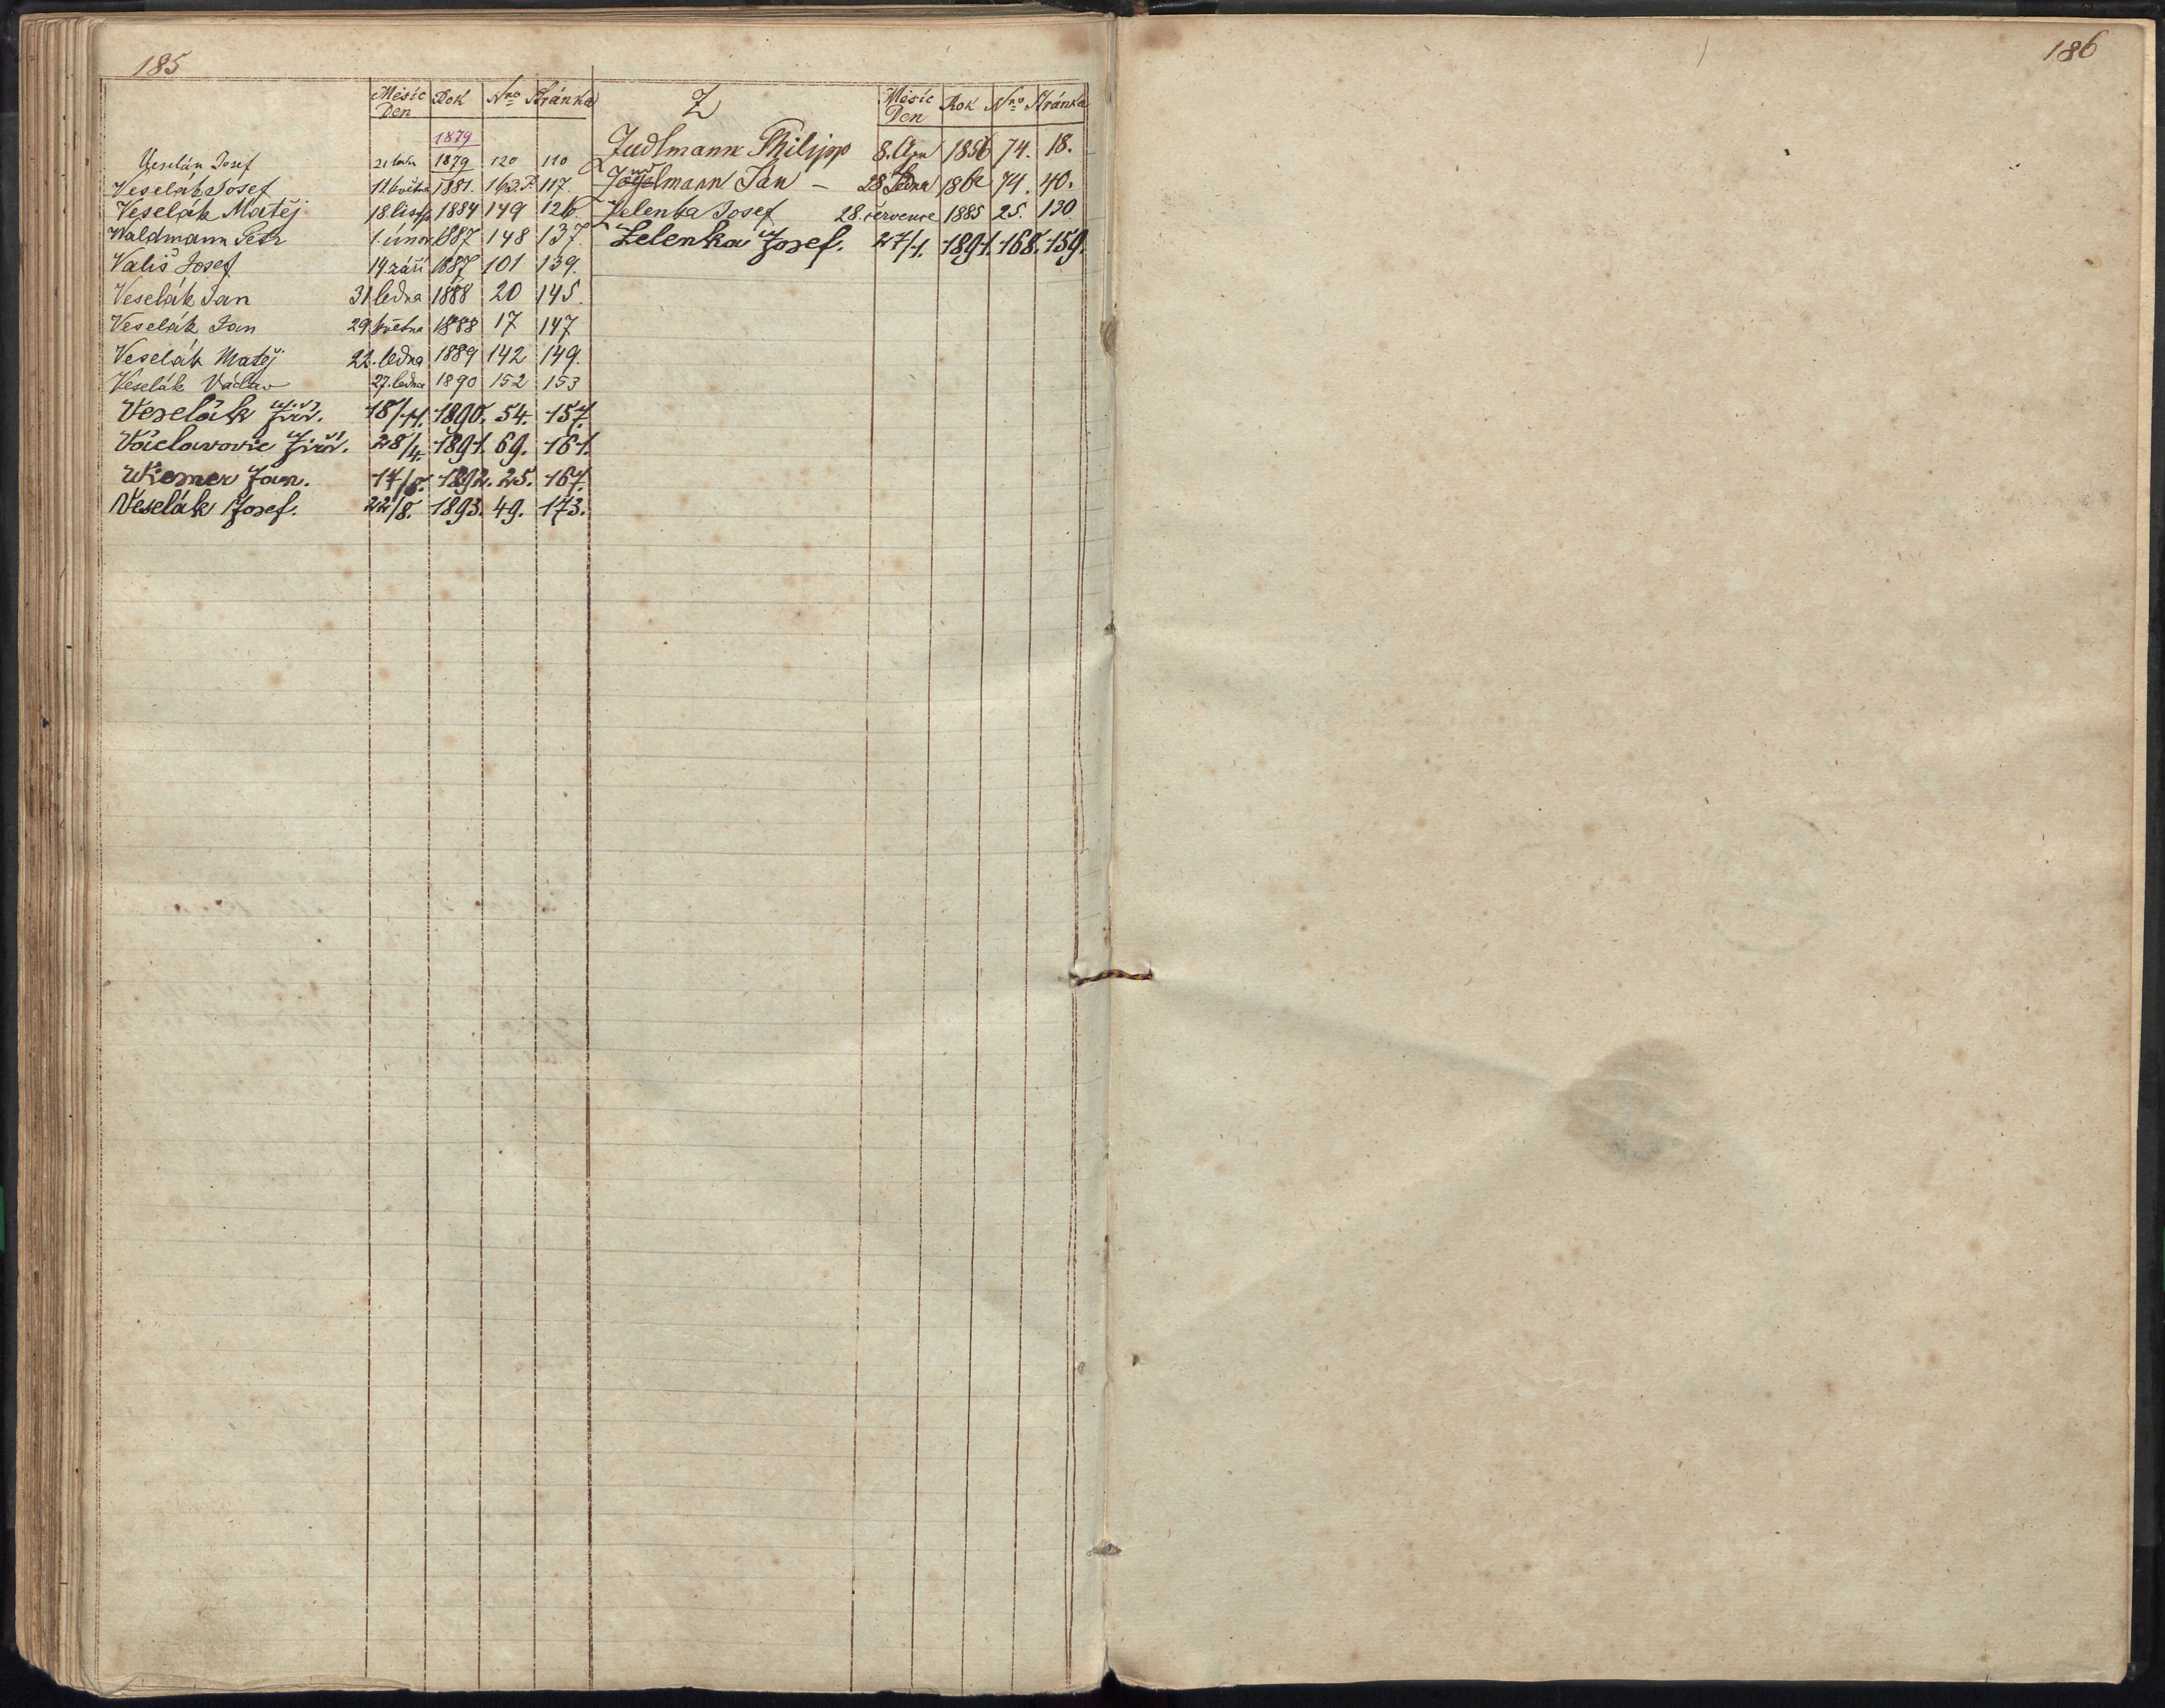 185
Měsíc Den Rok Nro Stránka
1879
Veselák Josef 1879 120 110
Veselák Josef 12 května 1881. 163. 117.
Veselák Matěj 18. listop. 1884 149 126.
Waldmann Petr 1. února 1887 148 137.
Vališ Josef 14. září 1887 101 139.
Veselák Jan 31 ledna 1888 20 145.
Veselák Jan 29. května 1888 17 147
Veselák Matěj 22. ledna 1889 142 149.
Veselák Václav 27. ledna 1890 152 153
Veselák Jiří. 18/11. 1890. 54. 157.
Václavovic Jiří. 28/4. 1891. 69. 161.
Jan. 17/8. 1892. 25. 167.
Veselák Josef. 22/8. 1893. 49. 173.
Z
Měsíc Den Rok Nro Stránka
Zudlmann Philipp 8. Apr 1856 74. 18.
Jan – 28 Ledna 74. 40.
Zelenka Josef 28. července 1885 25. 130
Zelenka Josef. 27/1. 1891. 168. 159.
186